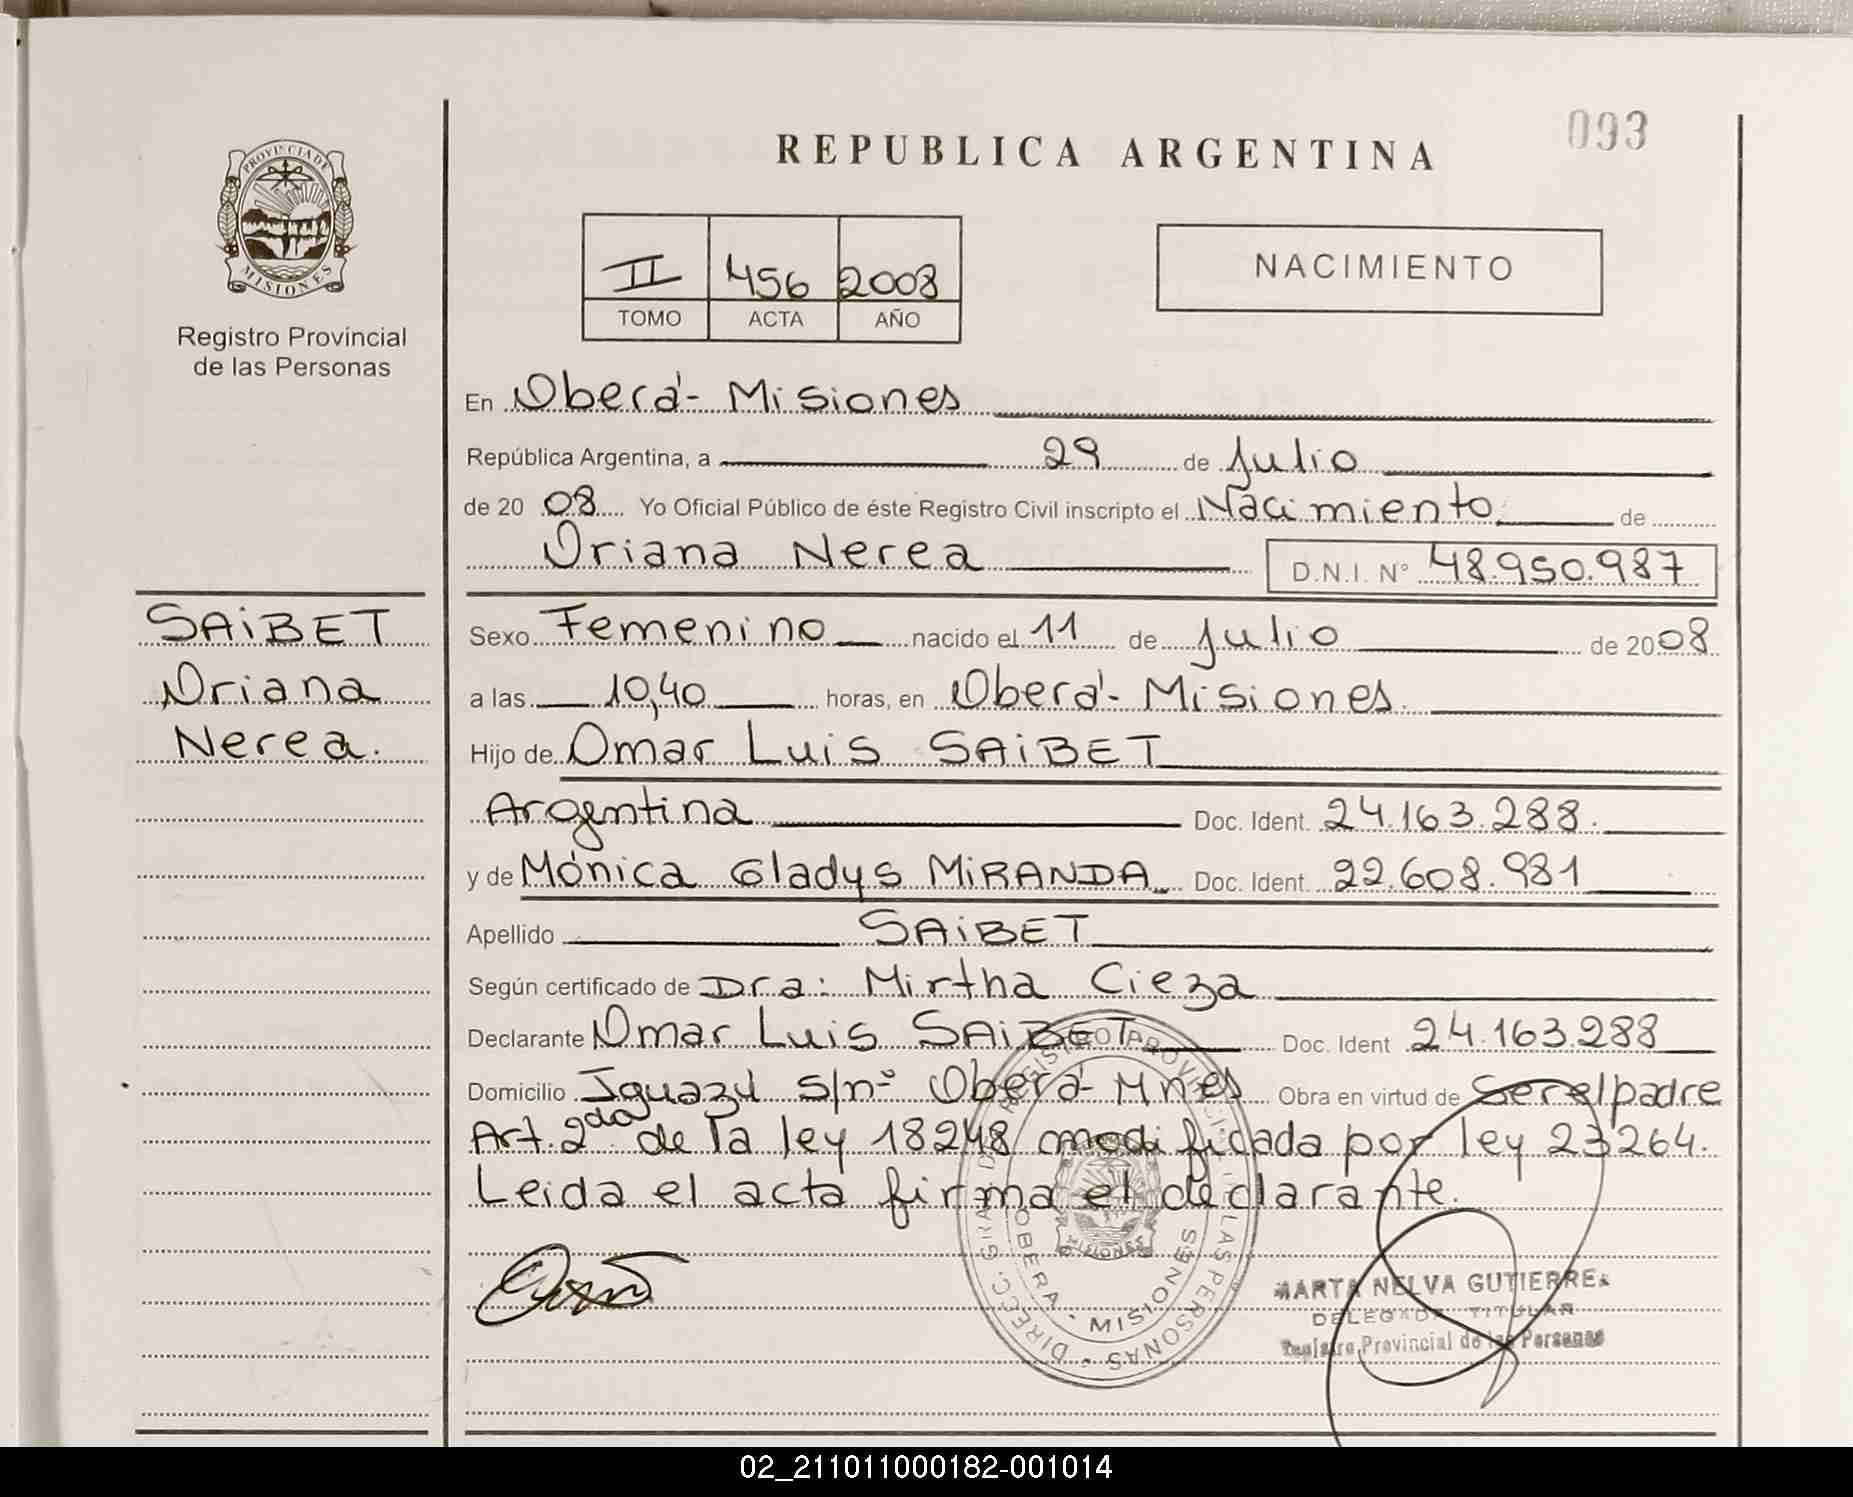 093
REPUBLICA ARGENTINA
PROVINCIA DE
MISIONES
Registro Provincial
de las Personas
II 456 2008
TOMO ACTA AÑO
NACIMIENTO
En Oberá - Misiones
República Argentina, a 29 de Julio
de 20 08 Yo Oficial Público de éste Registro Civil inscripto el Nacimiento de
Oriana Nerea D.N.I. N° 48.950.987
SAiBET
Oriana
Nerea.
Sexo Femenino nacido el 11 de Julio de 2008
a las 10,40 horas, en Oberá - Misiones.
Hijo de Omar Luis SAiBET
Argentina Doc. Ident. 24.163.288.
y de Mónica Gladys MiRANDA Doc. Ident. 22.608.981
Apellido SAiBET
Según certificado de Dra: Mirtha Cieza
Declarante Omar Luis SAiBET Doc. Ident 24.163.288
Domicilio Iguazú s/nº Oberá - Mnes Obra en virtud de Ser el padre
Art. 2do de la ley 18248 modificada por ley 23264.
Leida el acta firma el declarante.
OBERA - MISIONES
MARTA NELVA GUTIERREZ
DELEGADA TITULAR
Registro Provincial de las Personas
02_211011000182-001014